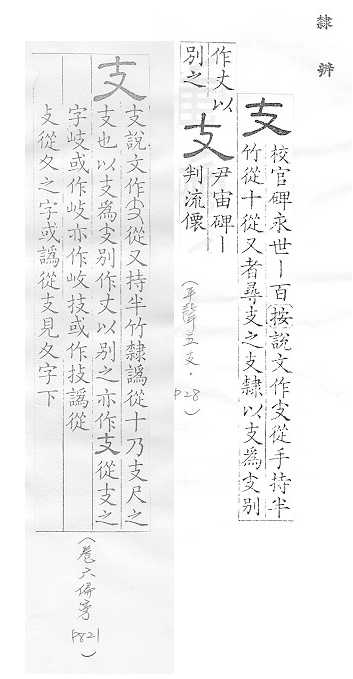 隸辨
支 校官碑永世丨百按說文作支從手持半
竹從十從又者尋支之支隸以支為支別
作丈以
別之 支 尹宙碑丨
判流僡
(平聲五支.
P28)
支 支說文作支從又持半竹隸譌從十乃支尺之
支也以支為支別作丈以別之亦作支從支之
字岐或作歧亦作岐技或作技譌從
攴從攵之字或譌從支見攵字下
(卷六偏旁
P82)